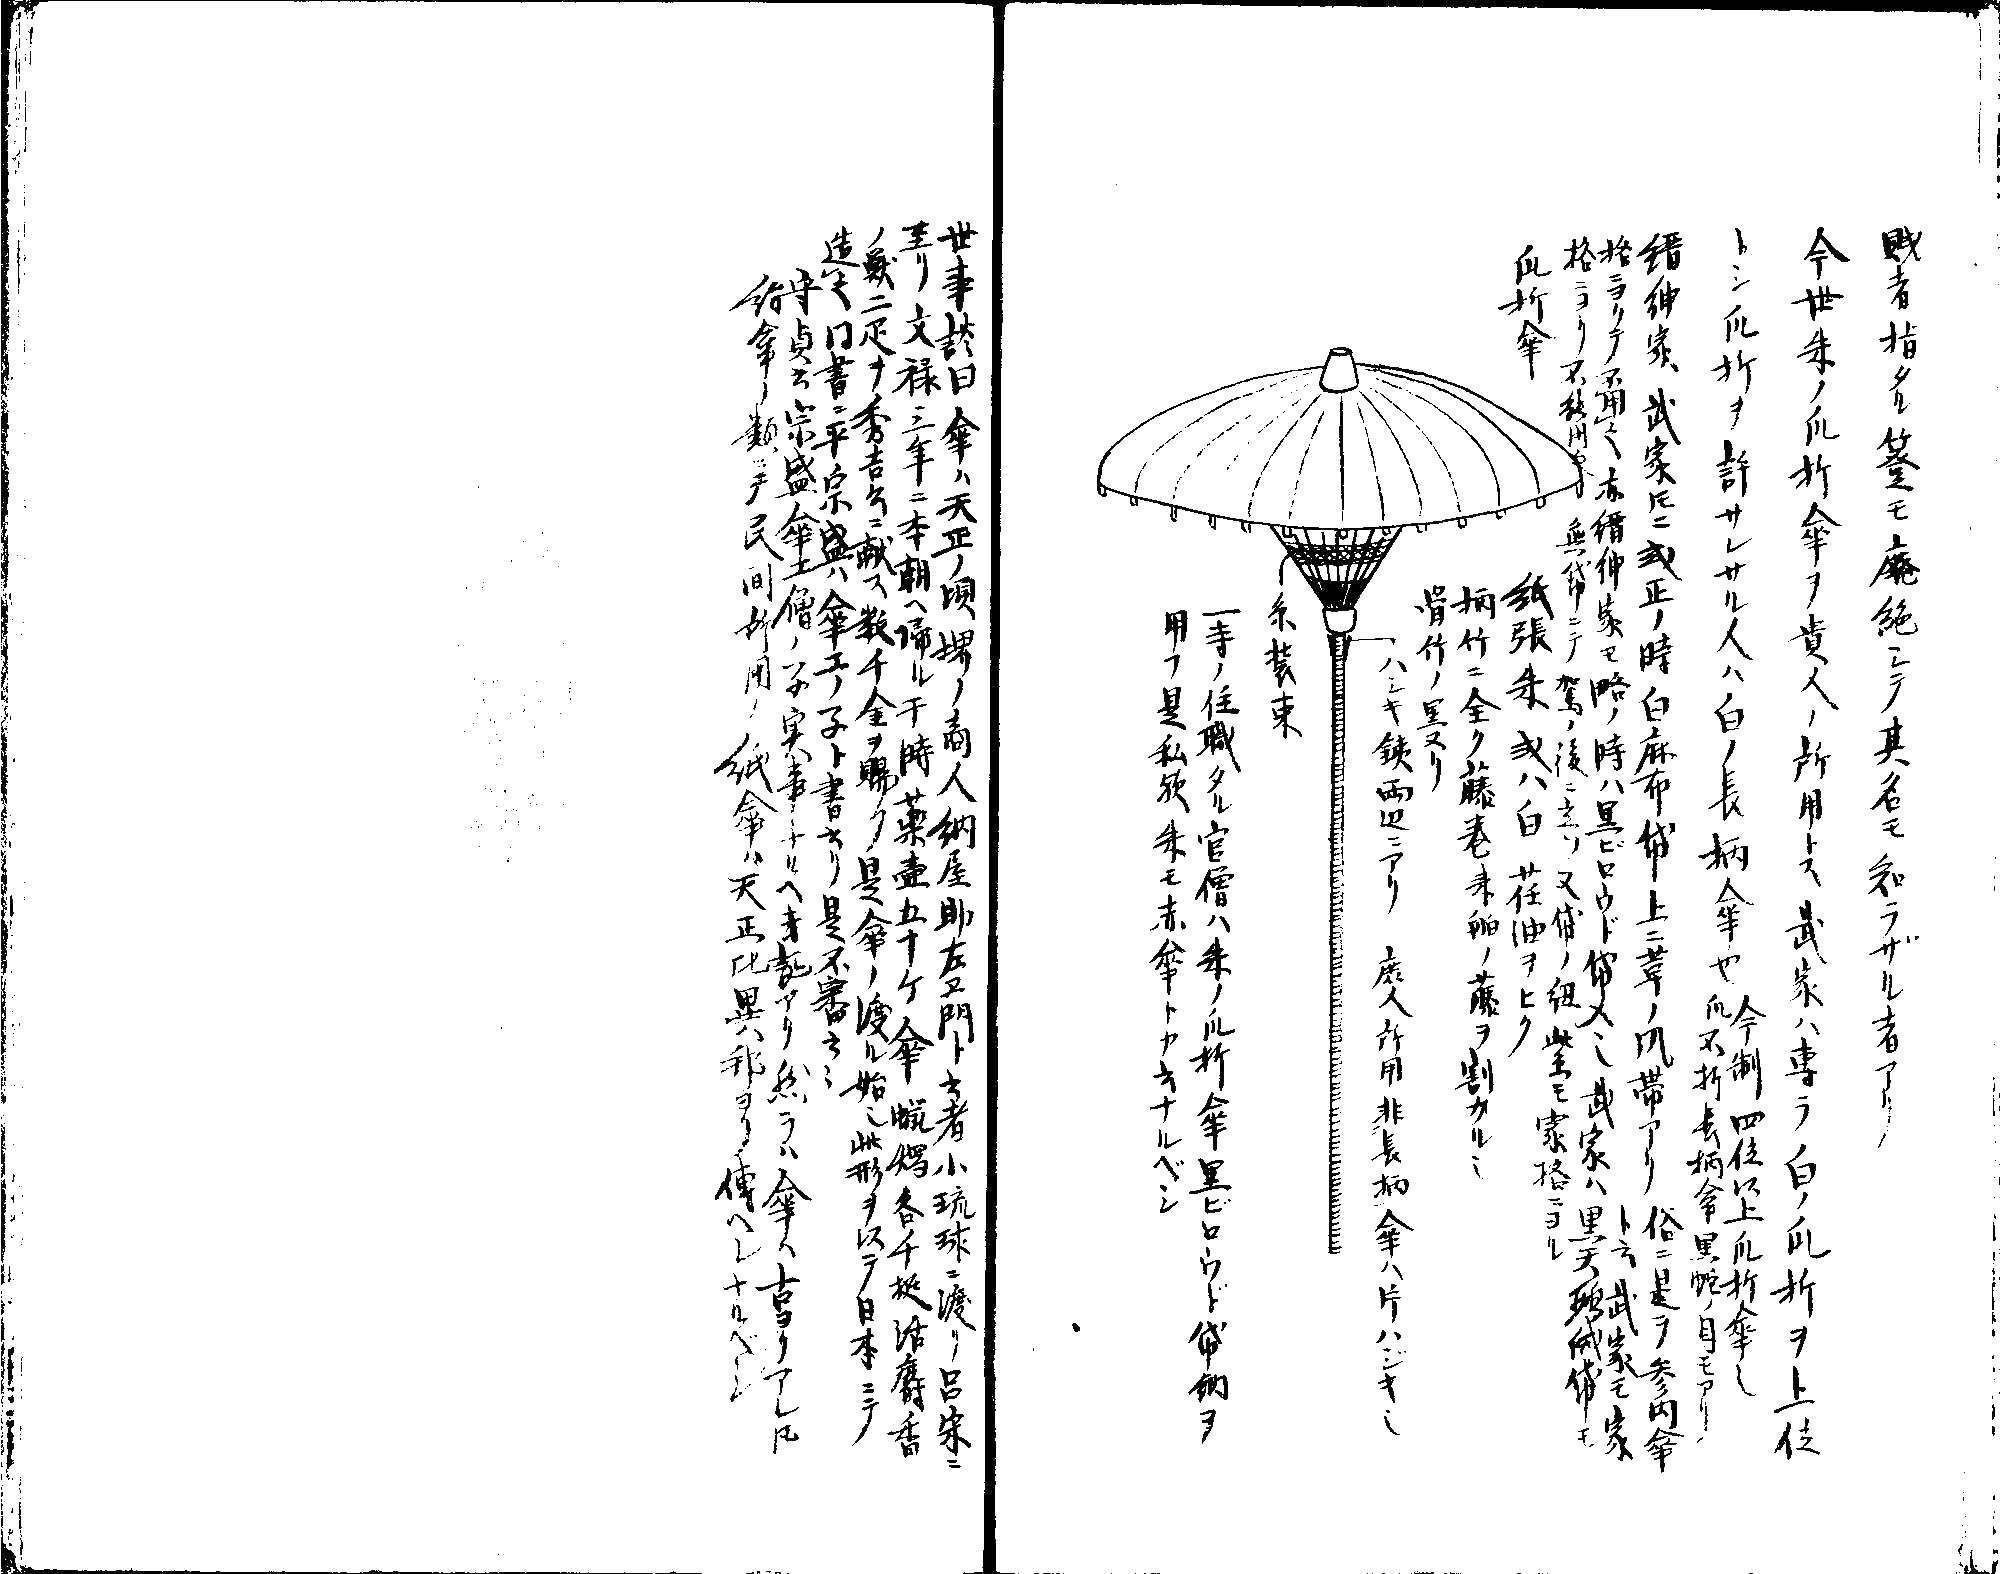 賎者指タル簦モ廃絶シテ其名モ知ラザル者アリ
今世朱ノ爪折傘ヲ貴人ノ所用トス武家ハ専ラ白ノ爪折ヲ上位
トシ爪折ヲ許サレサル人ハ白ノ長柄傘也
今制四位以上爪折傘也
爪不折長柄傘黒蛇ノ目モアリ
縉紳家武家トモニ或正ノ時白麻布袋上ニ革ノ帯アリ
俗ニ是ヲ参内傘
ト云武家モ家
格ニヨリテ不用之亦縉紳家モ略ノ時ハ黒ビロウド袋又ハ武家ハ黒天鵞絨袋モ
格ニヨリ不能用
無袋ニテ駕ノ後ニ立ツ又袋ノ紐紫モ家格ニヨル
爪折傘
紙張朱或ハ白荏油ヲヒク
柄竹ニ全ク藤巻朱舶ノ藤ヲ割カル也
骨竹ノ黒ヌリ
ハシキ鋏両辺ニアリ
庶人所用非長柄傘ハ片ハジキ也
糸装束
一寺ノ住職タル官僧ハ朱ノ爪折傘黒ビロウド袋納ヲ
用フ是私欤朱モ赤傘トカキナルベシ
世事談曰傘ハ天正ノ頃堺ノ商人納屋助左エ門ト云者小琉球ニ渡リ呂宋ニ
至リ文禄三年ニ本朝ヘ帰ル干時薬壷五十ケ傘蝋燭各千挺活麝香
ノ獣二疋ヲ秀吉公ニ献ス数千金ヲ賜フ是傘ノ渡ル始也此形ヲ以テ日本ニテ
造之同書ニ平宗盛ハ傘工ノ子ト書セリ是不審云々
守貞云宗盛傘工僧ノ子実事ナルヘキ説アリ然ラハ傘ハ古ヨリアレトモ
絹傘ノ類ニテ民間所用ノ紙傘ハ天正比異邦ヨリ傳ヘシナルベシ